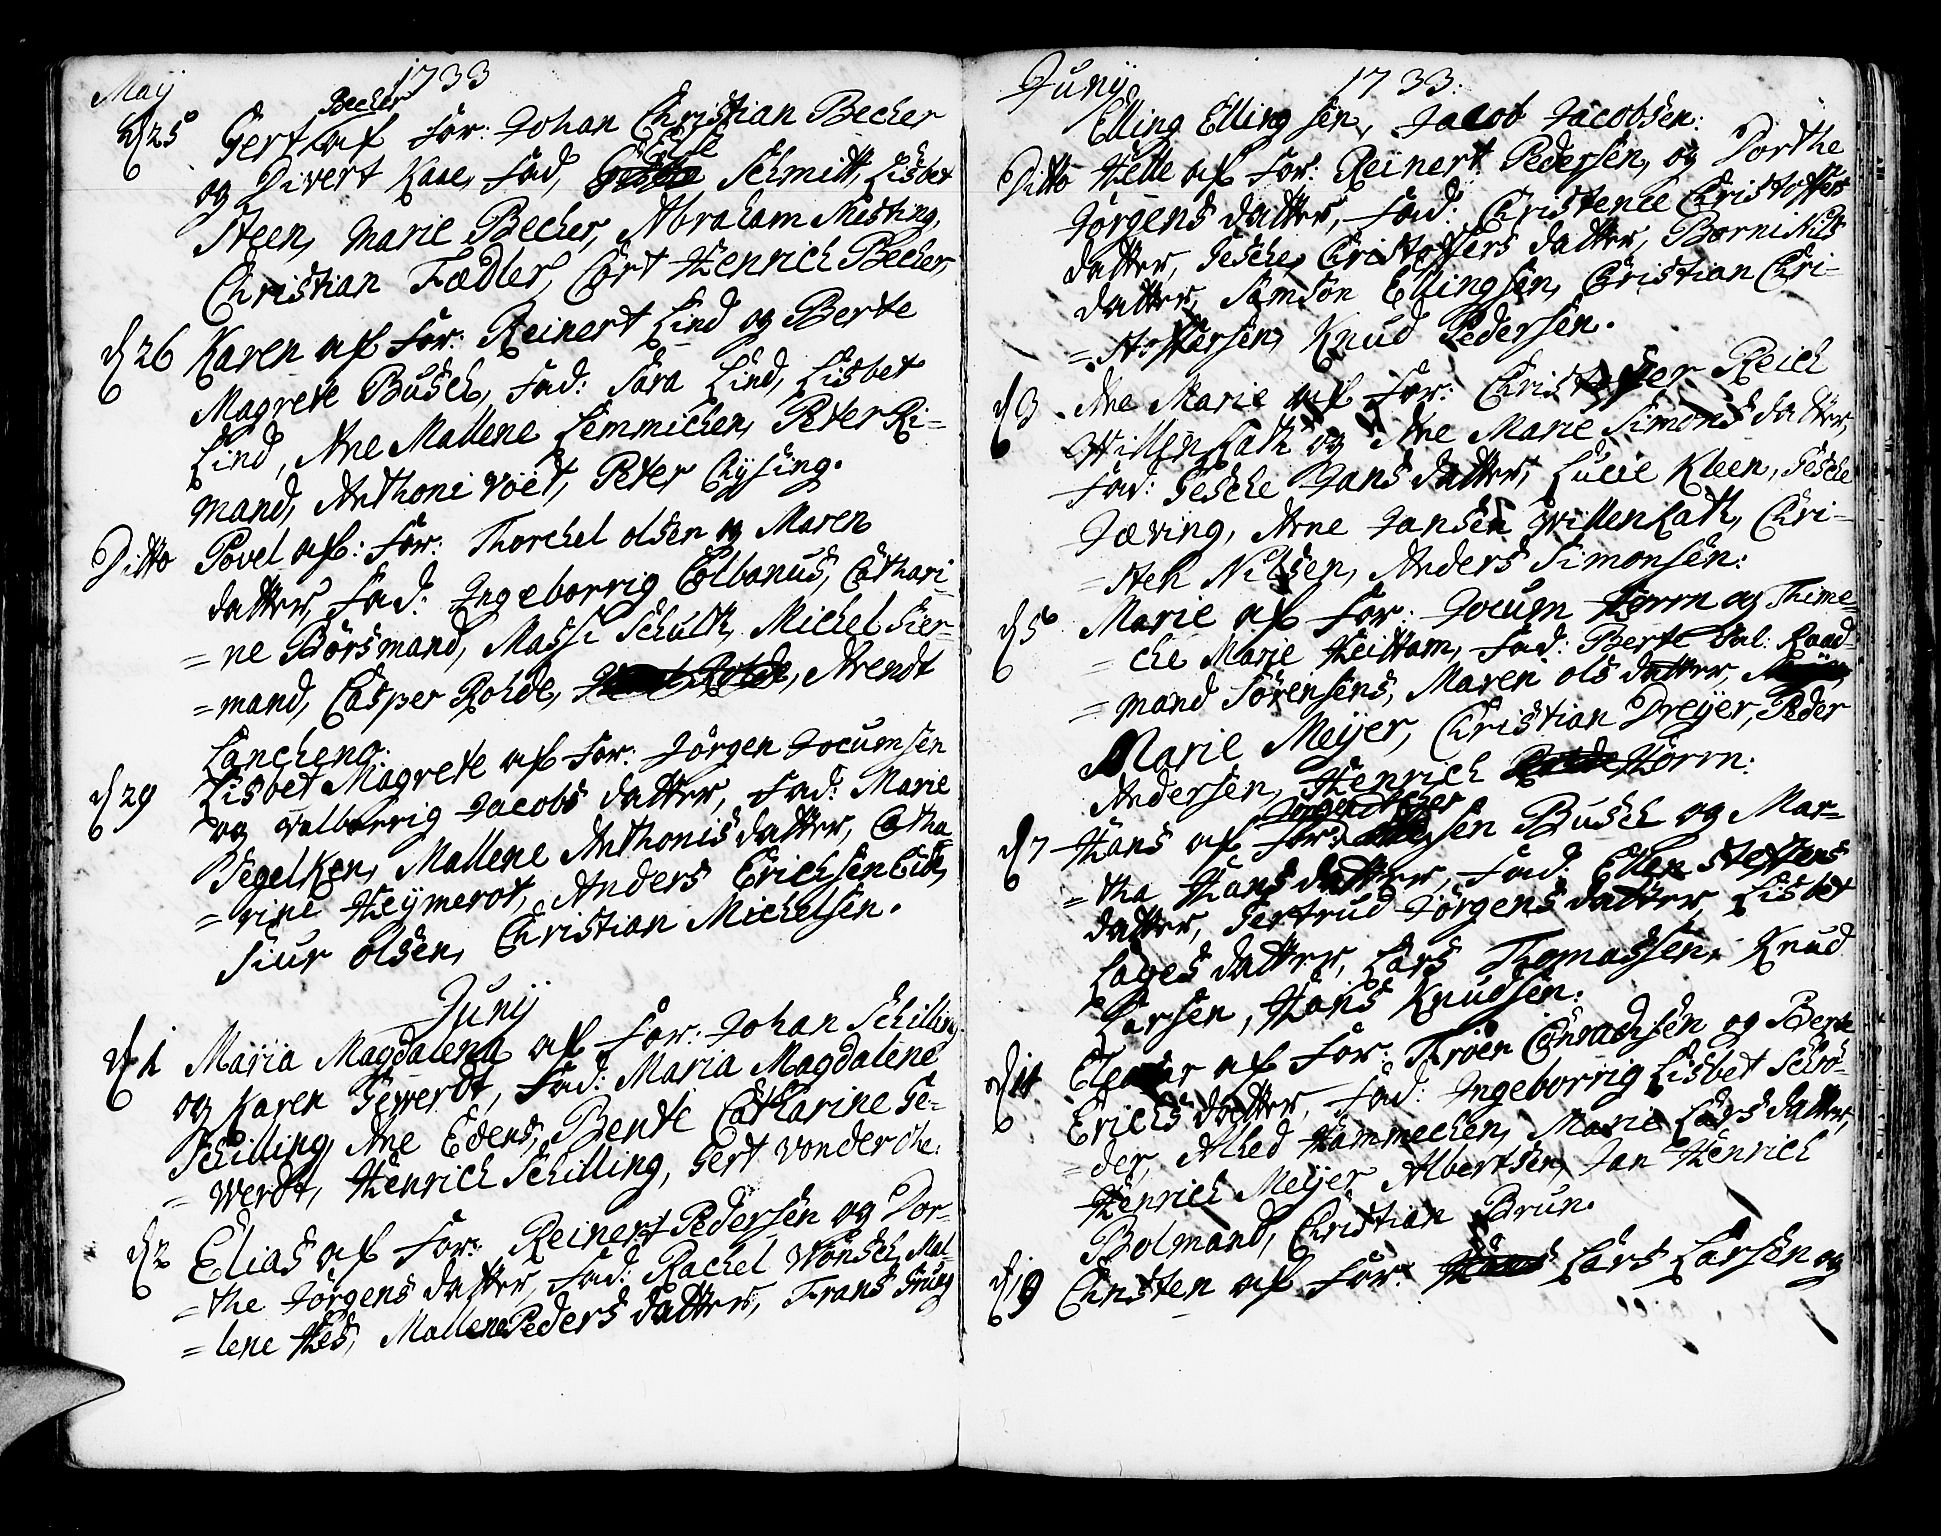 May 1733
d 25 Gert Becher af For: Johan Christian Becher
og Divert Kaae, Fad, Else Schmitt, Lisbet
Steen, Marie Becher, Abraham Misting,
Christian Fædler, Cort Henrich Becher,
d 26 Karen af For: Reinert Lind og Berte
Magrete Busch, Fad: Sara Lind, Lisbet
Lind, Ane Mallene Lemmichen, Peter Ri-
mand, Anthoni Voet, Peter Chysing.
Ditto Povel af: For: Thorchel olsen og Maren
datter, Fad: Ingeborrig Colbanus, Cathari-
=ne Börsmand, Masse Schult, Michel Sier-
=mand, Casper Rohde, Arendt
Lancheng.
d 29 Lisbet Magrete af For: Jörgen Jocumsen
og Valborrig Jacobs datter, Fad: Marie
Segelken, Mallene Anthonis datter, Catha
=rine Heymerot, Anders Erichsen Eide,
Siur olsen, Christian Michelsen.
Junÿ
d 1 Maria Magdalena af For: Johan Schilling
og Karen Gewerdt, Fad: Maria Magdalene
Schilling, Ane Edens, Bente Catharine Ge-
=werdt, Henrich Schilling, Gert Vonder Ohe.
d 2 Elias af For: Reinert Pedersen og Dor-
=the Jörgens datter, Fad: Rachel Wönsch, Mal-
=lene Hes, Mallene Peders datter, Frans Grueg
Junÿ 1733.
Elling Elling sen, Jacob Jacobsen.
Ditto Helle af For: Reÿnert Pedersen, og Dorthe
Jörgens datter, Fad: Christence Christoffers
datter, Gesche Christoffers datter, Borni Nils
datter, Samson Ellingsen, Christian Chri-
=stoffersen, Knud Pedersen.
d 3 Ane Marie af For: Christoffer Reich
Willenkath og Ane Marie Simons datter,
Fad: Gesche Jans datter, Lucie Kleen, Gesche
Jæving, Arne Jansen Willenkath, Chri-
=sten Nilsen, Anders Simonsen:
d 5 Marie af For: Jocum Horm og Thime-
=che Marie Heittam, Fad: Berte Sal: Raad-
=mand Sörensens, Maren ols datter,
Marie Meÿer, Christian Dreÿer, Peder
Andersen, Henrich Horm:
d 7 Hans af For: Ingebricht sen Busch og Mar-
=tha Hans datter, Fad: Ellen Steffens
datter, Gertrud Jörgens datter, Lisbet
Lages datter, Lars Thomassen, Knud
Larsen, Hans Knudsen:
d 14 af For: Troen Conradsen og Berte
Erichs datter, Fad: Ingeborrig Lisbet Schrö-
=der, Alhed Hammechen, Marie Lars datter,
Henrich Meÿer Albertsen, Jan Henrich
Bolmand, Christian Brun.
d 19 Christen af For: Lars Larsen og